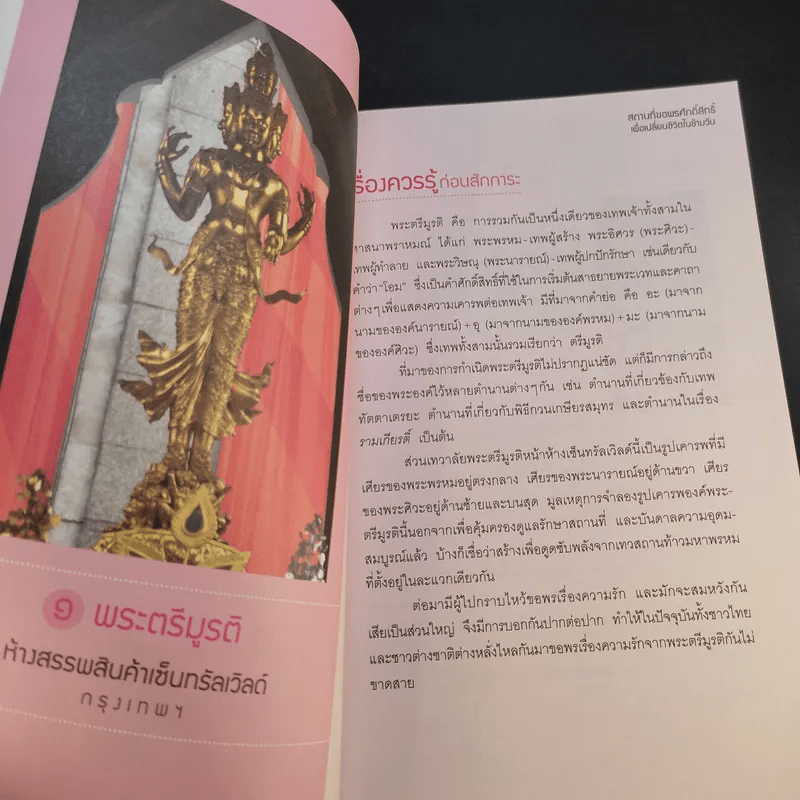 ๑ พระตรีมูรติ
ห้างสรรพสินค้าเซ็นทรัลเวิลด์
กรุงเทพฯ
สถานที่ขอพรศักดิ์สิทธิ์
เพื่อเปลี่ยนชีวิตในข้ามวัน
รื่องควรรู้ ก่อนสักการะ
พระตรีมูรติ คือ การรวมกันเป็นหนึ่งเดียวของเทพเจ้าทั้งสามใน
าสนาพราหมณ์ ได้แก่ พระพรหม-เทพผู้สร้าง พระอิศวร (พระศิวะ)-
เทพผู้ทำลาย และพระวิษณุ (พระนารายณ์)-เทพผู้ปกปักรักษา เช่นเดียวกับ
คำว่า "โอม" ซึ่งเป็นคำศักดิ์สิทธิ์ที่ใช้ในการเริ่มต้นสาธยายพระเวทและคาถา
ต่างๆเพื่อแสดงความเคารพต่อเทพเจ้า มีที่มาจากคำย่อ คือ อะ (มาจาก
นามขององค์นารายณ์) + อุ (มาจากนามขององค์พรหม) + มะ (มาจากนาม
ขององค์ศิวะ) ซึ่งเทพทั้งสามนั้นรวมเรียกว่า ตรีมูรติ
ที่มาของการกำเนิดพระตรีมูรติไม่ปรากฏแน่ชัด แต่ก็มีการกล่าวถึง
ชื่อของพระองค์ไว้หลายตำนานต่างๆกัน เช่น ตำนานที่เกี่ยวข้องกับเทพ
ทัตตาเตรยะ ตำนานที่เกี่ยวกับพิธีกวนเกษียรสมุทร และตำนานในเรื่อง
รามเกียรติ์ เป็นต้น
ส่วนเทวาลัยพระตรีมูรติหน้าห้างเซ็นทรัลเวิลด์นี้เป็นรูปเคารพที่มี
เศียรของพระพรหมอยู่ตรงกลาง เศียรของพระนารายณ์อยู่ด้านขวา เศียร
ของพระศิวะอยู่ด้านซ้ายและบนสุด มูลเหตุการจำลองรูปเคารพองค์พระ-
ตรีมูรตินี้นอกจากเพื่อคุ้มครองดูแลรักษาสถานที่ และบันดาลความอุดม-
สมบูรณ์แล้ว บ้างก็เชื่อว่าสร้างเพื่อดูดซับพลังจากเทวสถานท้าวมหาพรหม
ที่ตั้งอยู่ในละแวกเดียวกัน
ต่อมามีผู้ไปกราบไหว้ขอพรเรื่องความรัก และมักจะสมหวังกัน
เสียเป็นส่วนใหญ่ จึงมีการบอกกันปากต่อปาก ทำให้ในปัจจุบันทั้งชาวไทย
และชาวต่างชาติต่างหลั่งไหลกันมาขอพรเรื่องความรักจากพระตรีมูรติกันไม่
ขาดสาย